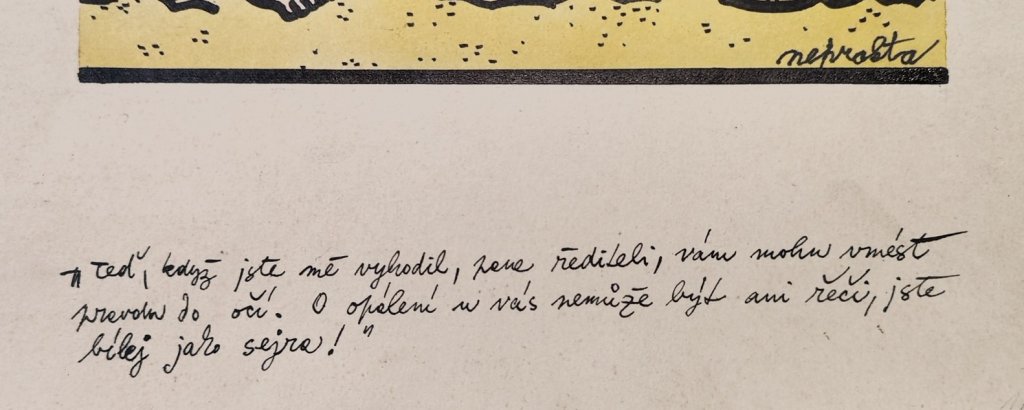 neprakta
„Teď, když jste mě vyhodil, pane řediteli, vám mohu vmést
pravdu do očí. O opálení u vás nemůže být ani řeči, jste
bílej jako sejra!"